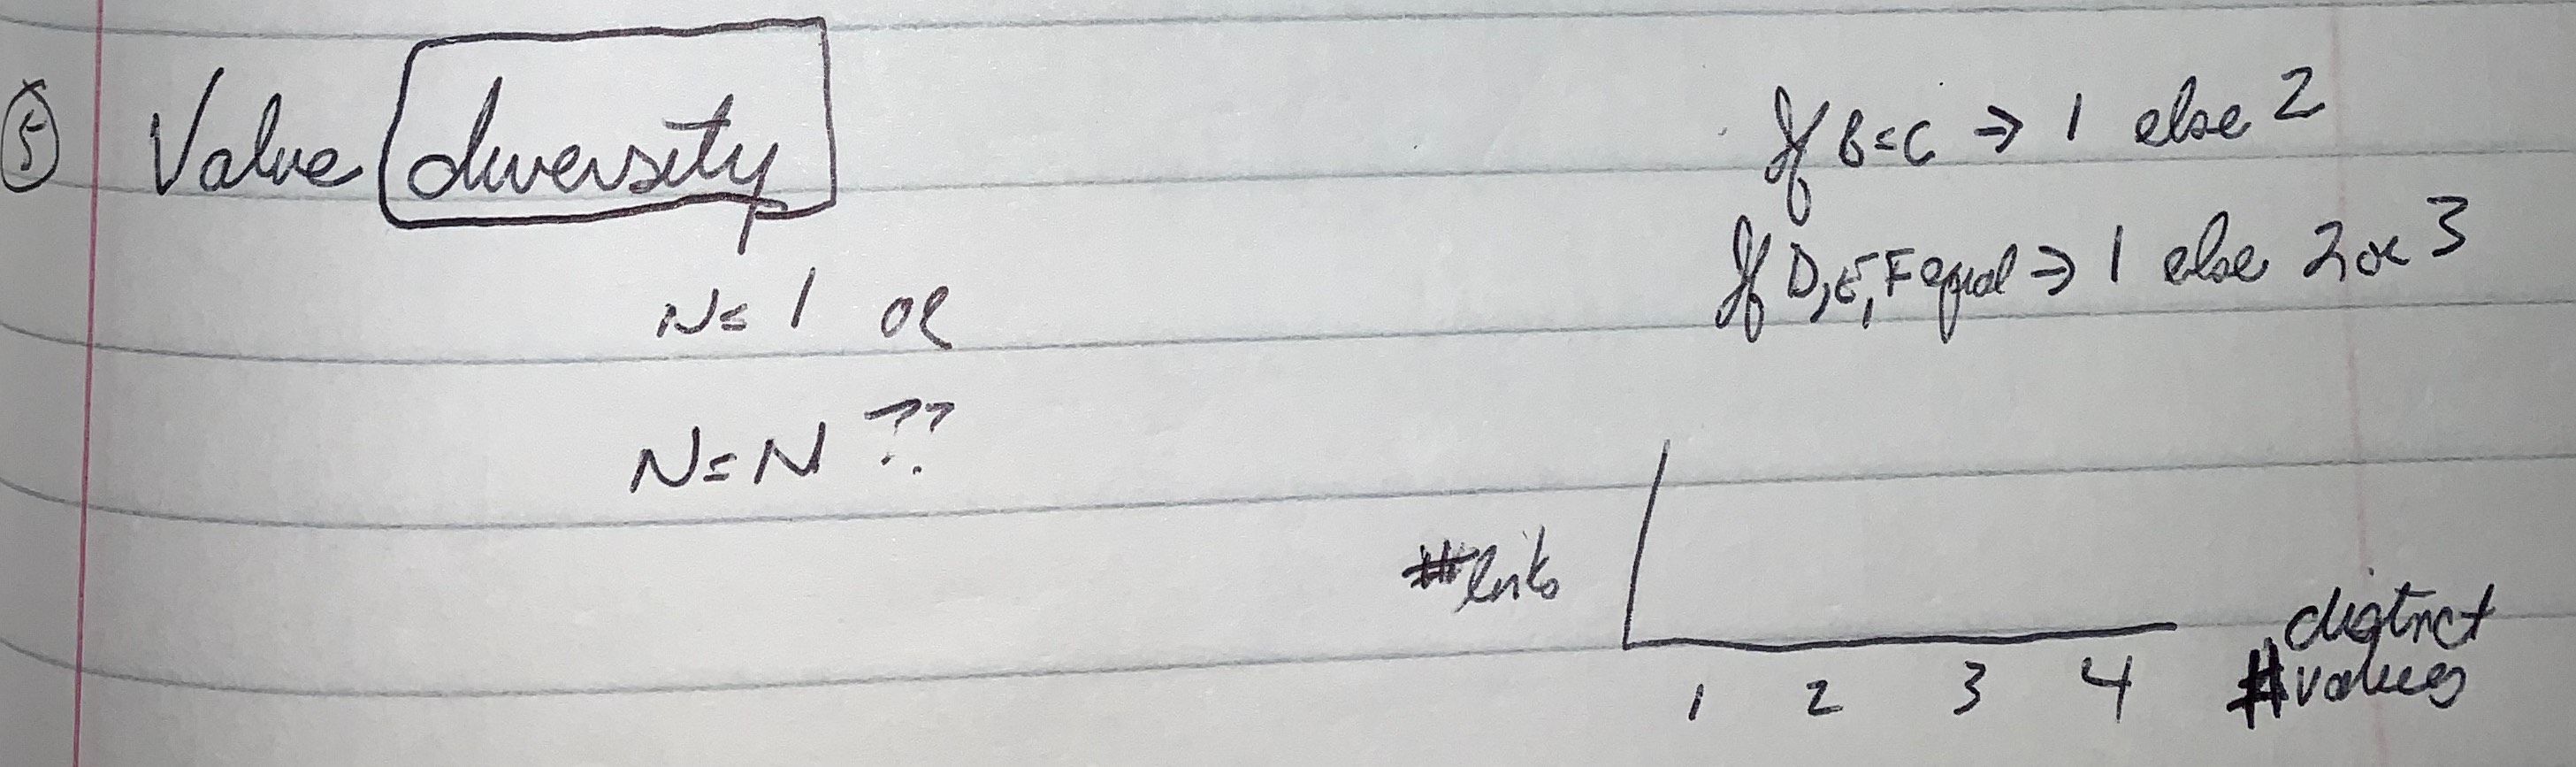 ⑤ Value diversity
N = 1 or
N = N ??
If B = C ⇒ 1 else 2
If D, E, F equal ⇒ 1 else 2 or 3
# links
1 2 3 4
# distnct values